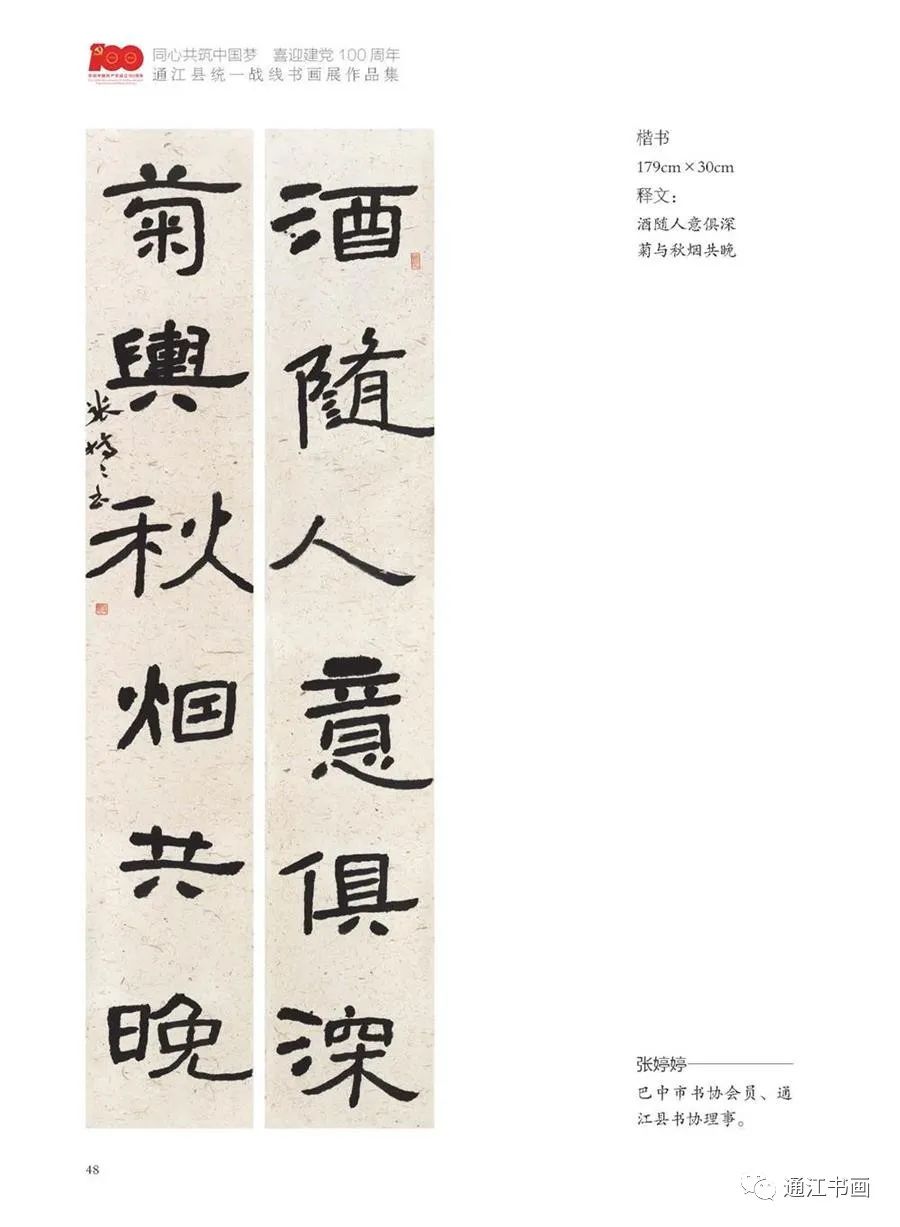 100
同心共筑中国梦 喜迎建党 100 周年
通江县统一战线书画展作品集
酒隨人意俱深
菊與秋烟共晚
张婷〻书
楷书
179cm×30cm
释文：
酒随人意俱深
菊与秋烟共晚
张婷婷
巴中市书协会员、通
江县书协理事。
48
通江书画